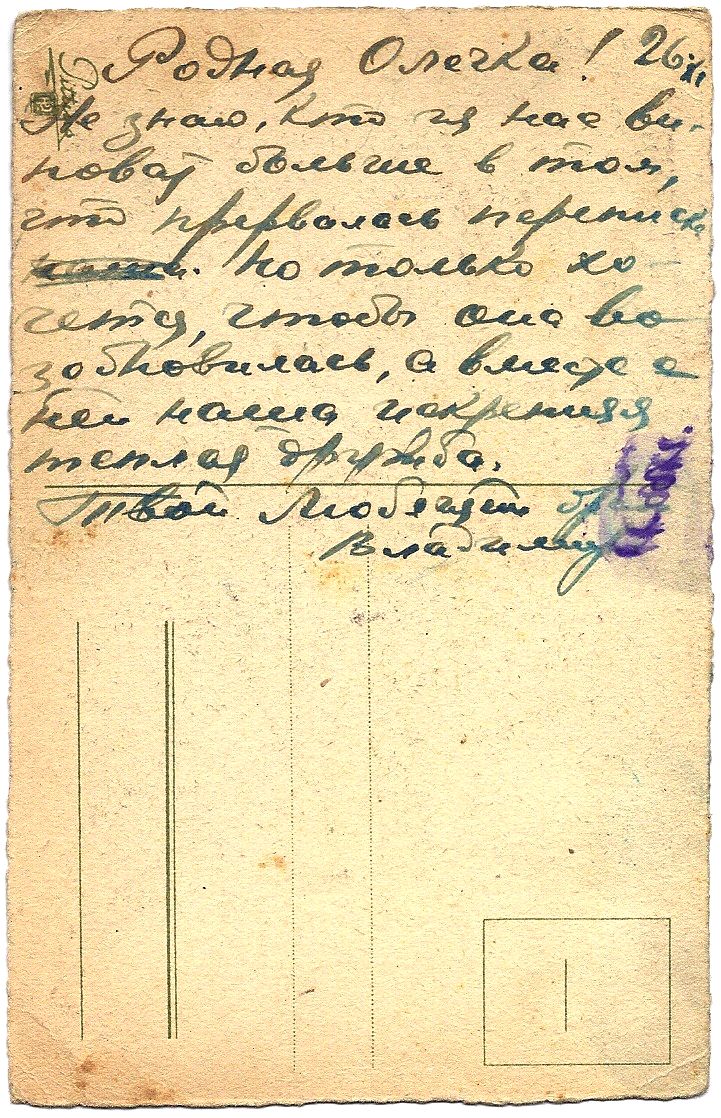 Родная Олечка! 26/XI
Не знаю, кто из нас ви-
новат больше в том,
что прервалась переписка
наша. Но только хо-
чется, чтобы она во
зобновилась, а вместе с
ней наша искренняя
теплая дружба.
Твой любящий брат
Владимир